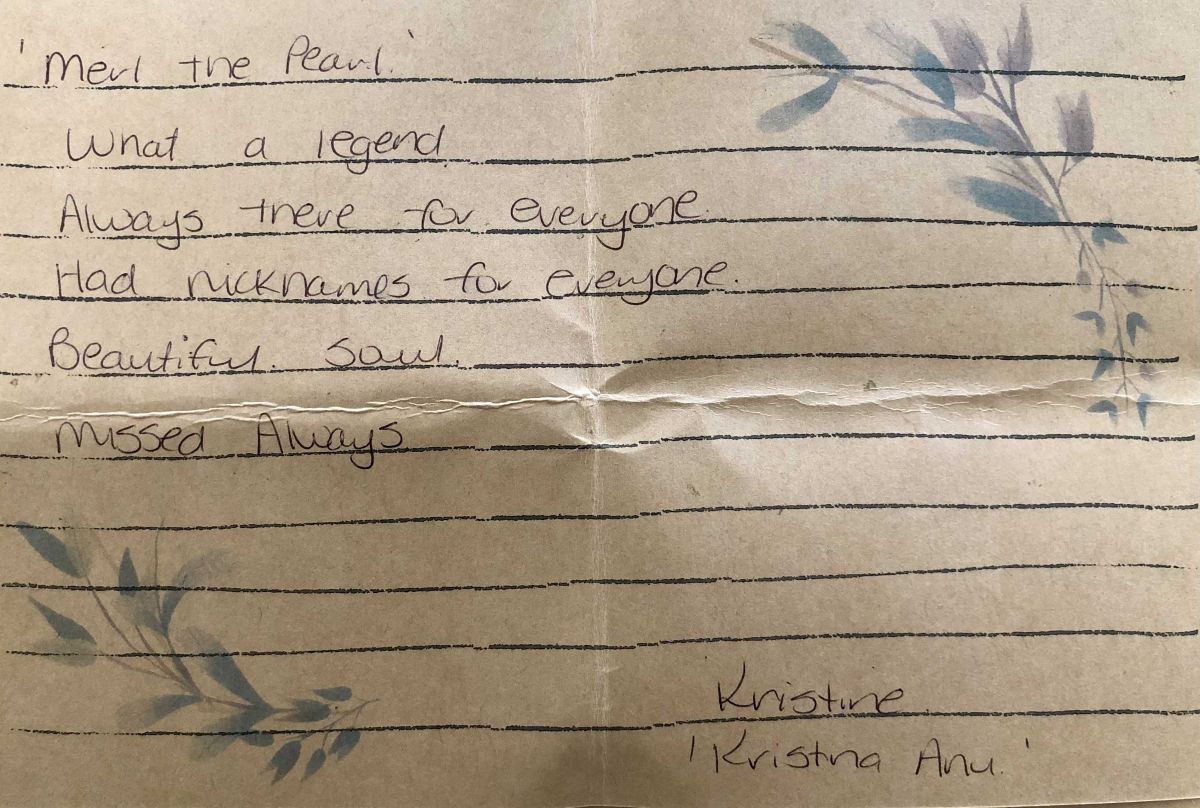 'Merl the Pearl.'
What a legend
Always there for everyone.
Had nicknames for everyone.
Beautiful. Soul.
Missed Always
Kristine.
'Kristina Anu.'